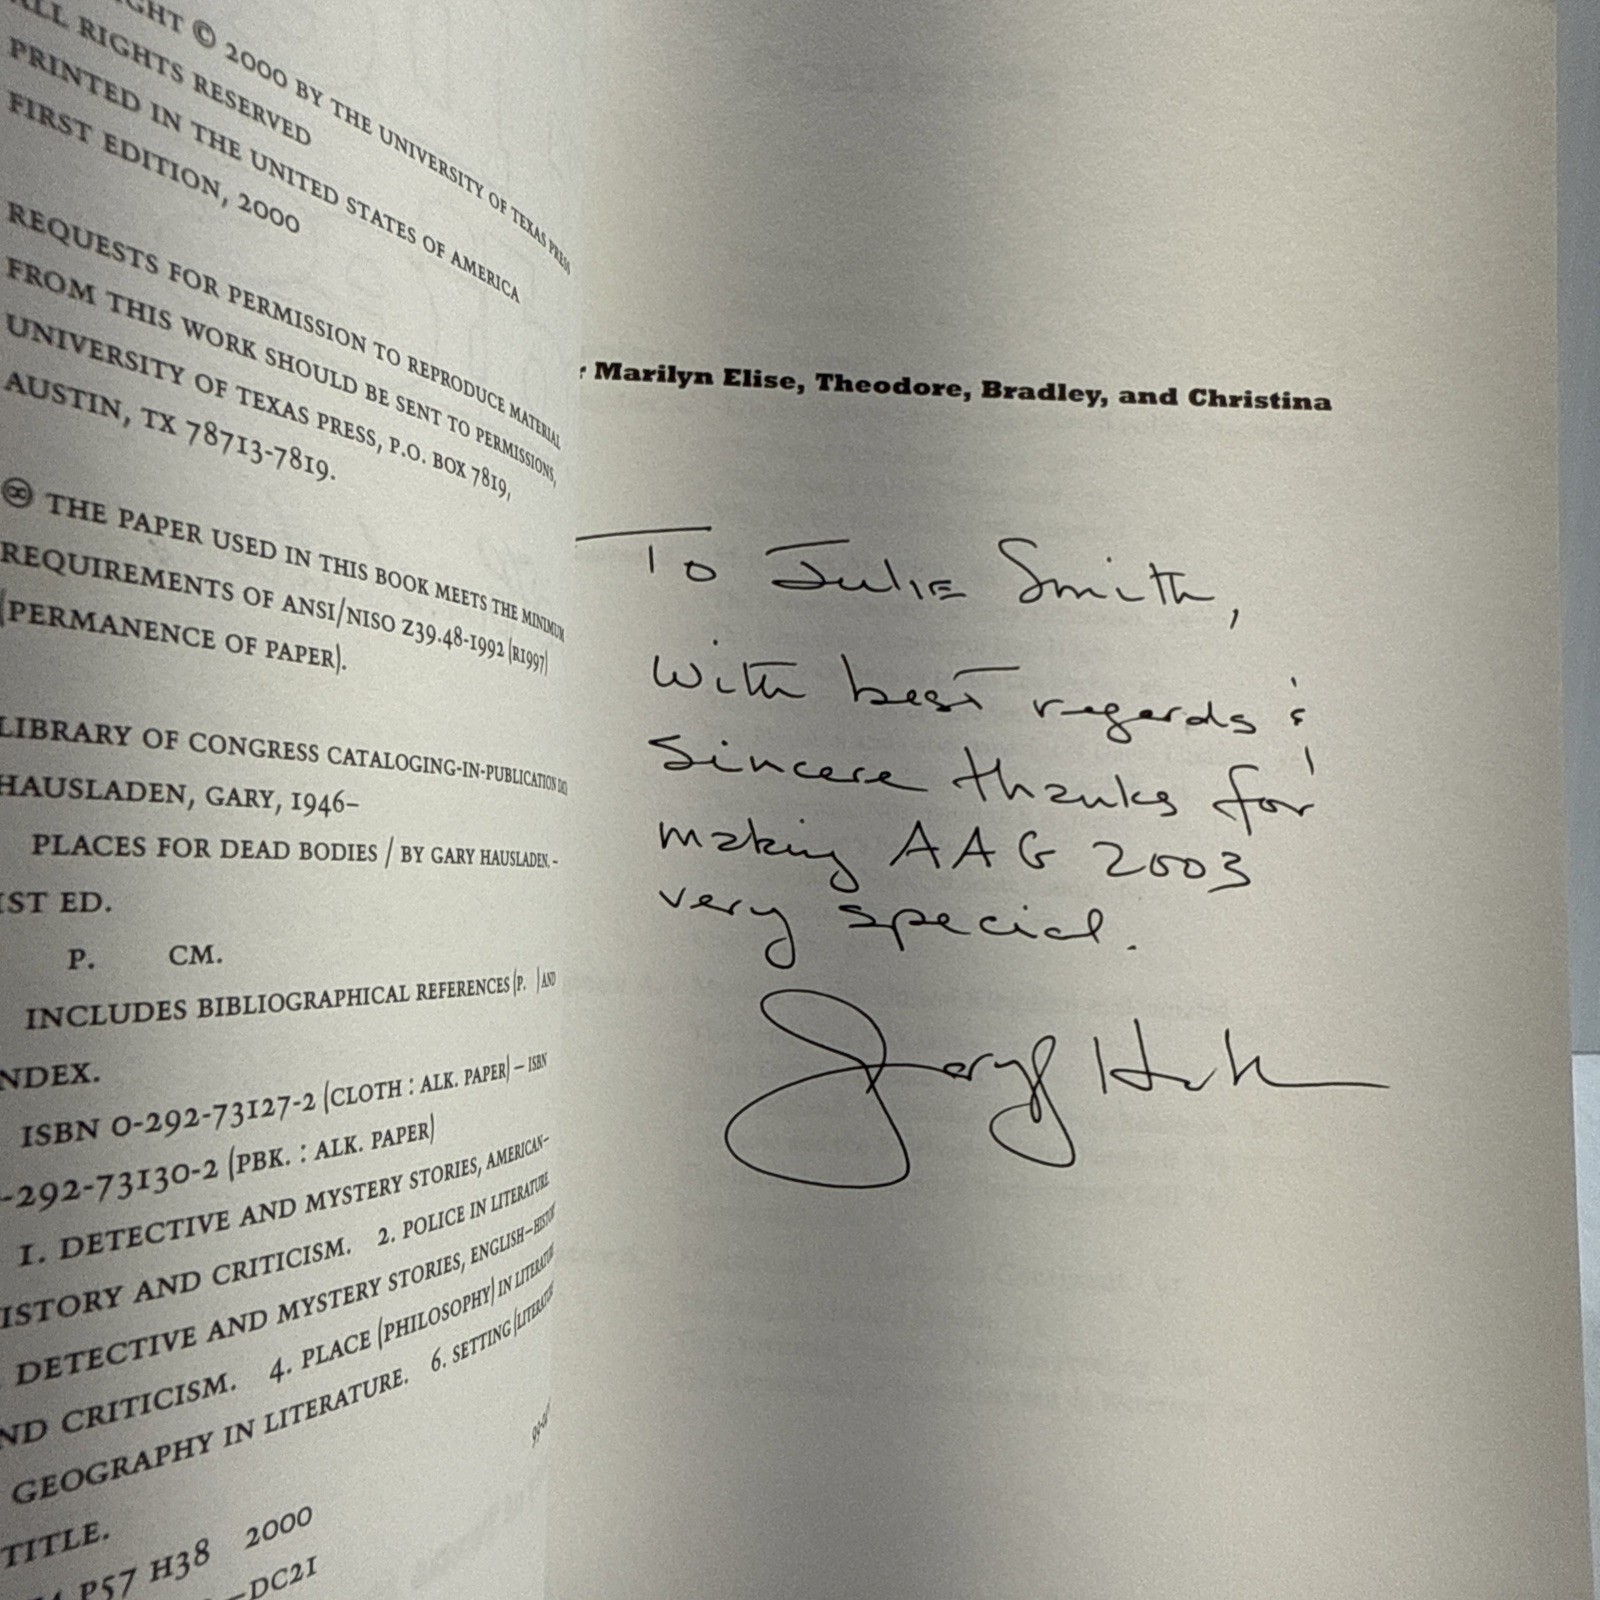 © 2000 BY THE UNIVERSITY OF TEXAS PRESS
ALL RIGHTS RESERVED
PRINTED IN THE UNITED STATES OF AMERICA
FIRST EDITION, 2000
REQUESTS FOR PERMISSION TO REPRODUCE MATERIAL
FROM THIS WORK SHOULD BE SENT TO PERMISSIONS,
UNIVERSITY OF TEXAS PRESS, P.O. BOX 7819,
AUSTIN, TX 78713-7819.
♾ THE PAPER USED IN THIS BOOK MEETS THE MINIMUM
REQUIREMENTS OF ANSI/NISO Z39.48-1992 (R1997)
(PERMANENCE OF PAPER).
LIBRARY OF CONGRESS CATALOGING-IN-PUBLICATION
HAUSLADEN, GARY, 1946–
PLACES FOR DEAD BODIES / BY GARY HAUSLADEN. –
1ST ED.
P. CM.
INCLUDES BIBLIOGRAPHICAL REFERENCES (P. ) AND
NDEX.
ISBN 0-292-73127-2 (CLOTH : ALK. PAPER) – ISBN
-292-73130-2 (PBK. : ALK. PAPER)
1. DETECTIVE AND MYSTERY STORIES, AMERICAN–
ISTORY AND CRITICISM. 2. POLICE IN LITERATURE
DETECTIVE AND MYSTERY STORIES, ENGLISH–HISTORY
ND CRITICISM. 4. PLACE (PHILOSOPHY) IN LITERATURE
GEOGRAPHY IN LITERATURE. 6. SETTING (LITERATURE
TITLE.
P57 H38 2000
—DC21
Marilyn Elise, Theodore, Bradley, and Christina
To Julie Smith,
With best regards &
Sincere thanks for
making AAG 2003
very special.
Gary H